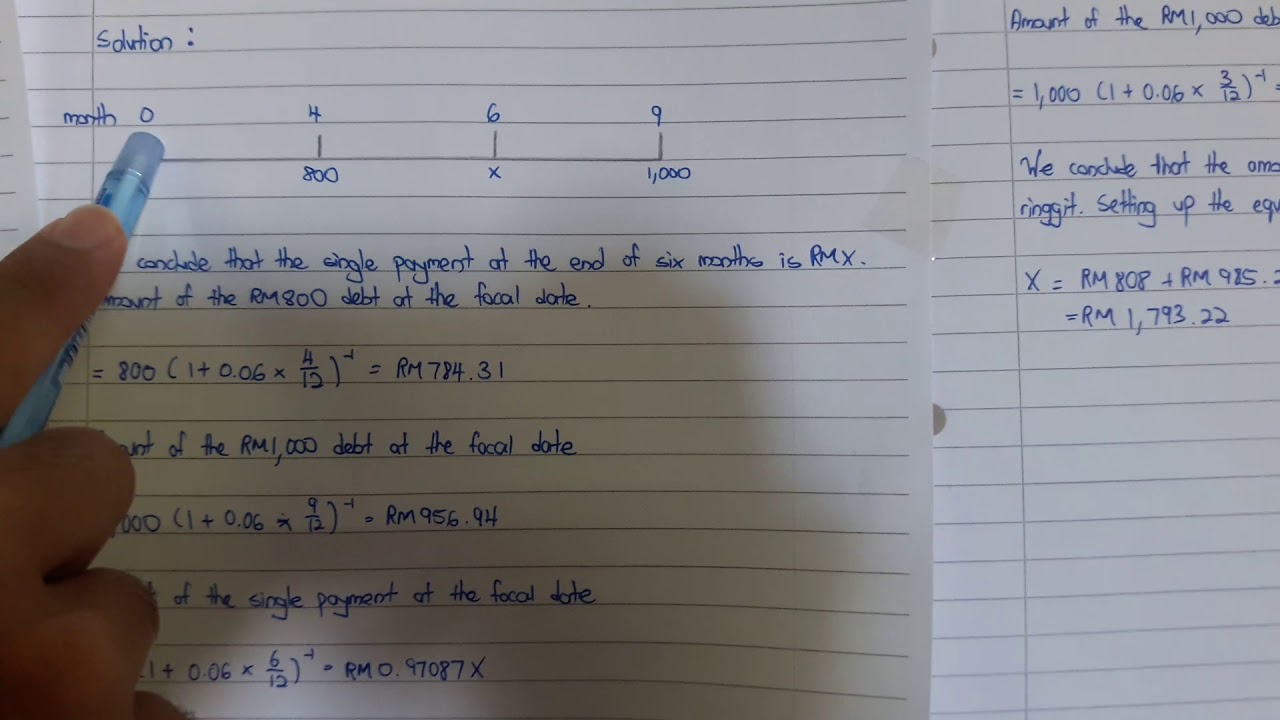 Solution :
month 0 4 6 9
800 x 1,000
conclude that the single payment at the end of six months is RMX.
of the RM800 debt at the focal date.
= 800 (1 + 0.06 × 4/12)⁻¹ = RM784.31
of the RM1,000 debt at the focal date
(1 + 0.06 × 9/12)⁻¹ = RM956.94
of the single payment at the focal date
1 + 0.06 × 6/12)⁻¹ = RM0.97087X
Amount of the RM1,000
= 1,000 (1 + 0.06 × 3/12)⁻¹ =
We conclude that the
ringgit. Setting up the
X = RM808 + RM985.
= RM1,793.22